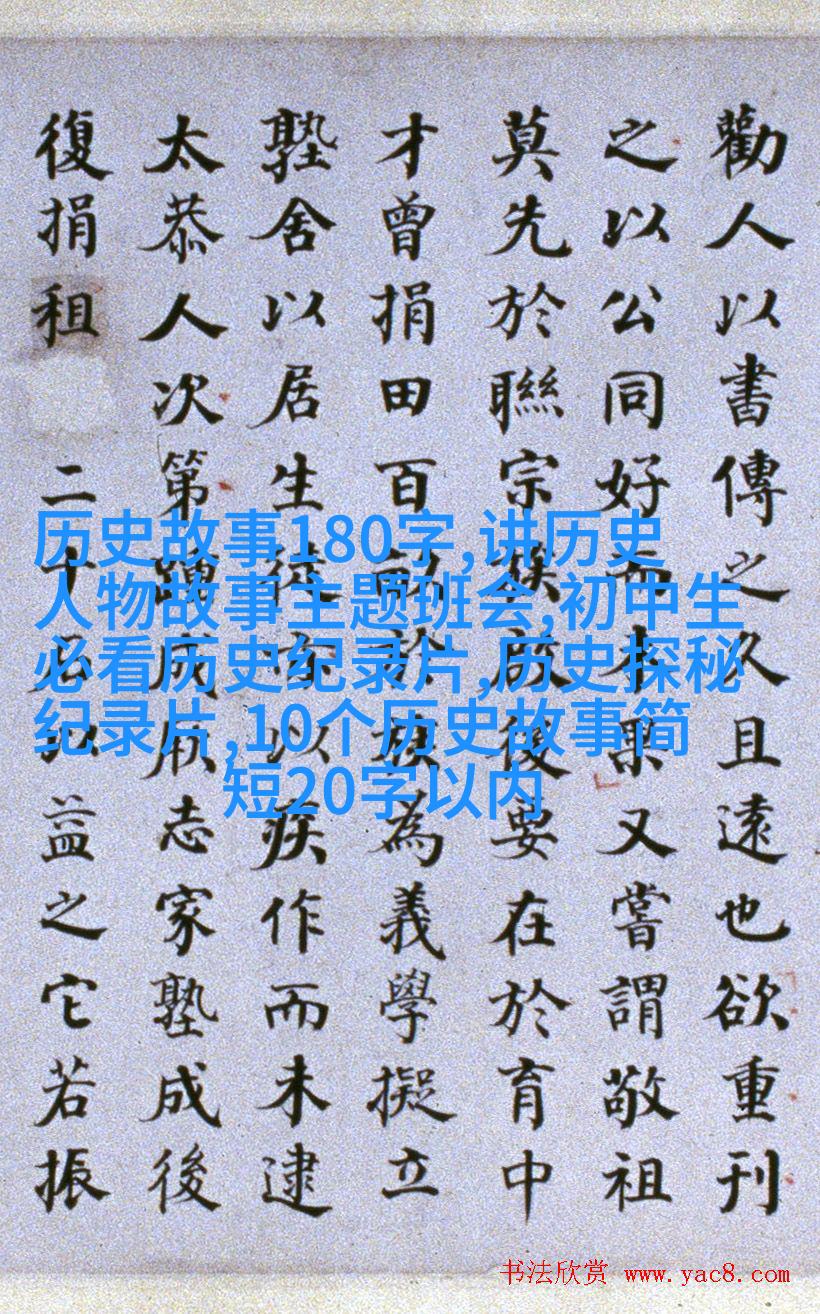 勸人以書傳之久且遠也欲重刊
之以公同好而未果又嘗謂敬祖
莫先於聯宗族啟後要在於育中
才曾捐田百畝於族為義學擬立
塾舍以居生徒以疾作而未逮
太恭人次第踵成厥志家塾成後
復捐租二十以益之它若振
历史故事180字,讲历史
人物故事主题班会,初中生
必看历史纪录片,历史探秘
纪录片,10个历史故事简
短20字以内
书法欣赏 www.yac8.com